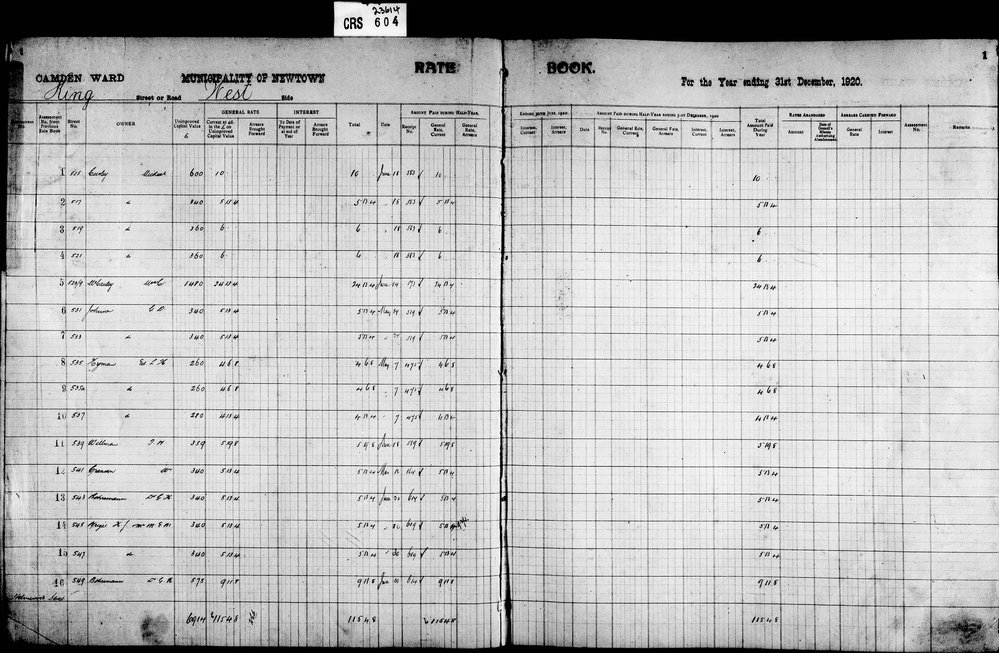 23614
CRS 604
1
1
CAMDEN WARD MUNICIPALITY OF NEWTOWN RATE BOOK. For the Year ending 31st December, 1920.
King Street or Road West Side
Assessment No. from Previous Rate Book Street No. OWNER Unimproved Capital Value £ GENERAL RATE Current at 4d. in the £ on Unimproved Capital Value Arrears Brought Forward INTEREST To Date of Payment or at end of Year Arrears Brought Forward Total Date AMOUNT PAID DURING HALF-YEAR. Receipt No. General Rate, Current General Rate, Arrears
ENDING 30TH JUNE, 1920. Interest, Current Interest, Arrears AMOUNT PAID DURING HALF-YEAR ENDING 31ST DECEMBER, 1920 Date Receipt No. General Rate, Current General Rate, Arrears Interest, Current Interest, Arrears Total Amount Paid During Year RATES ABANDONED Amount Date of Council's Minute Authorising Abandonment ARREARS CARRIED FORWARD General Rate Interest Assessment No. Remarks
1 515 Michael 600 10 10 June 18 10 10
2 517 " 340 5 13 4 5 13 4 " 18 5 13 4 5 13 4
3 519 " 360 6 6 " 18 6 6
4 521 " 360 6 6 " 18 6 6
5 1480 24 13 4 24 13 4 June 24 13 4 24 13 4
6 531 Johnson C D 340 5 13 4 5 13 4 May 519 5 13 4 5 13 4
7 533 " 340 5 13 4 5 13 4 519 5 13 4 5 13 4
8 535 Hyman 260 4 6 8 4 6 8 May 7 471 4 6 8 4 6 8
9 535a " 260 4 6 8 4 6 8 " 7 471 4 6 8 4 6 8
10 537 " 280 4 13 4 4 13 4 " 7 471 4 13 4 4 13 4
11 539 359 5 19 8 5 19 8 June 18 5 19 8 5 19 8
12 541 W 340 5 13 4 5 13 4 5 13 4 5 13 4
13 543 340 5 13 4 5 13 4 June 30 5 13 4 5 13 4
14 545 340 5 13 4 5 13 4 " 30 5 13 4 5 13 4
15 547 " 340 5 13 4 5 13 4 " 30 5 13 4 5 13 4
16 549 575 9 11 8 9 11 8 June 30 9 11 8 9 11 8
6914 115 4 8 115 4 8 115 4 8 115 4 8